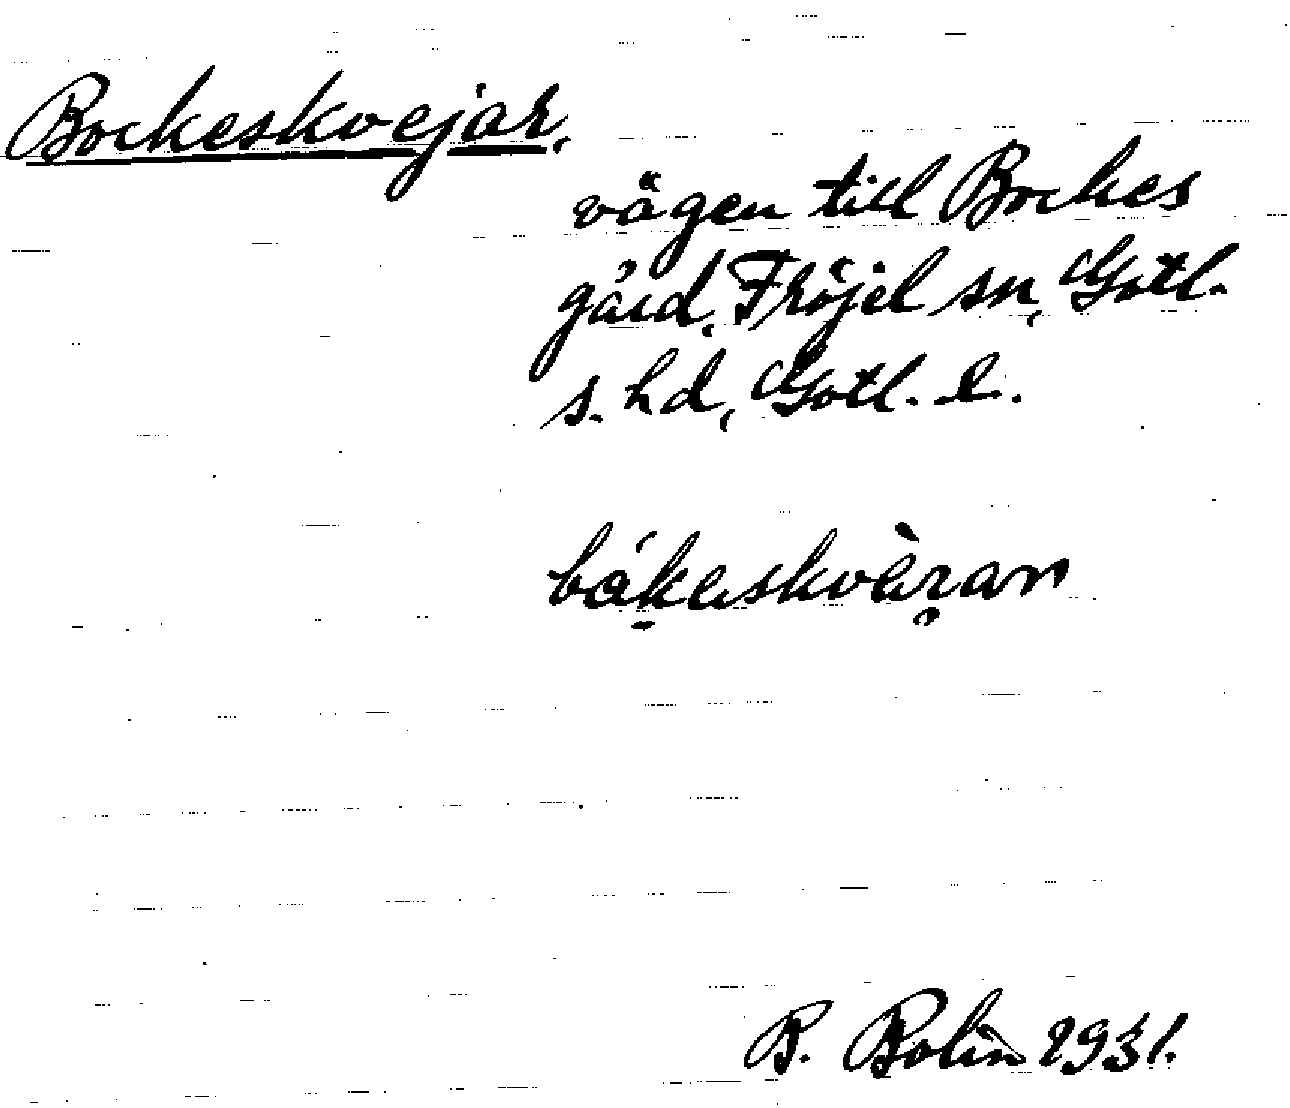 Bockeskvejar,
vägen till Bockes
gård, Fröjel sn, Gotl.
s. hd, Gotl. l.
bákeskvèran
B. Bolin 1931.